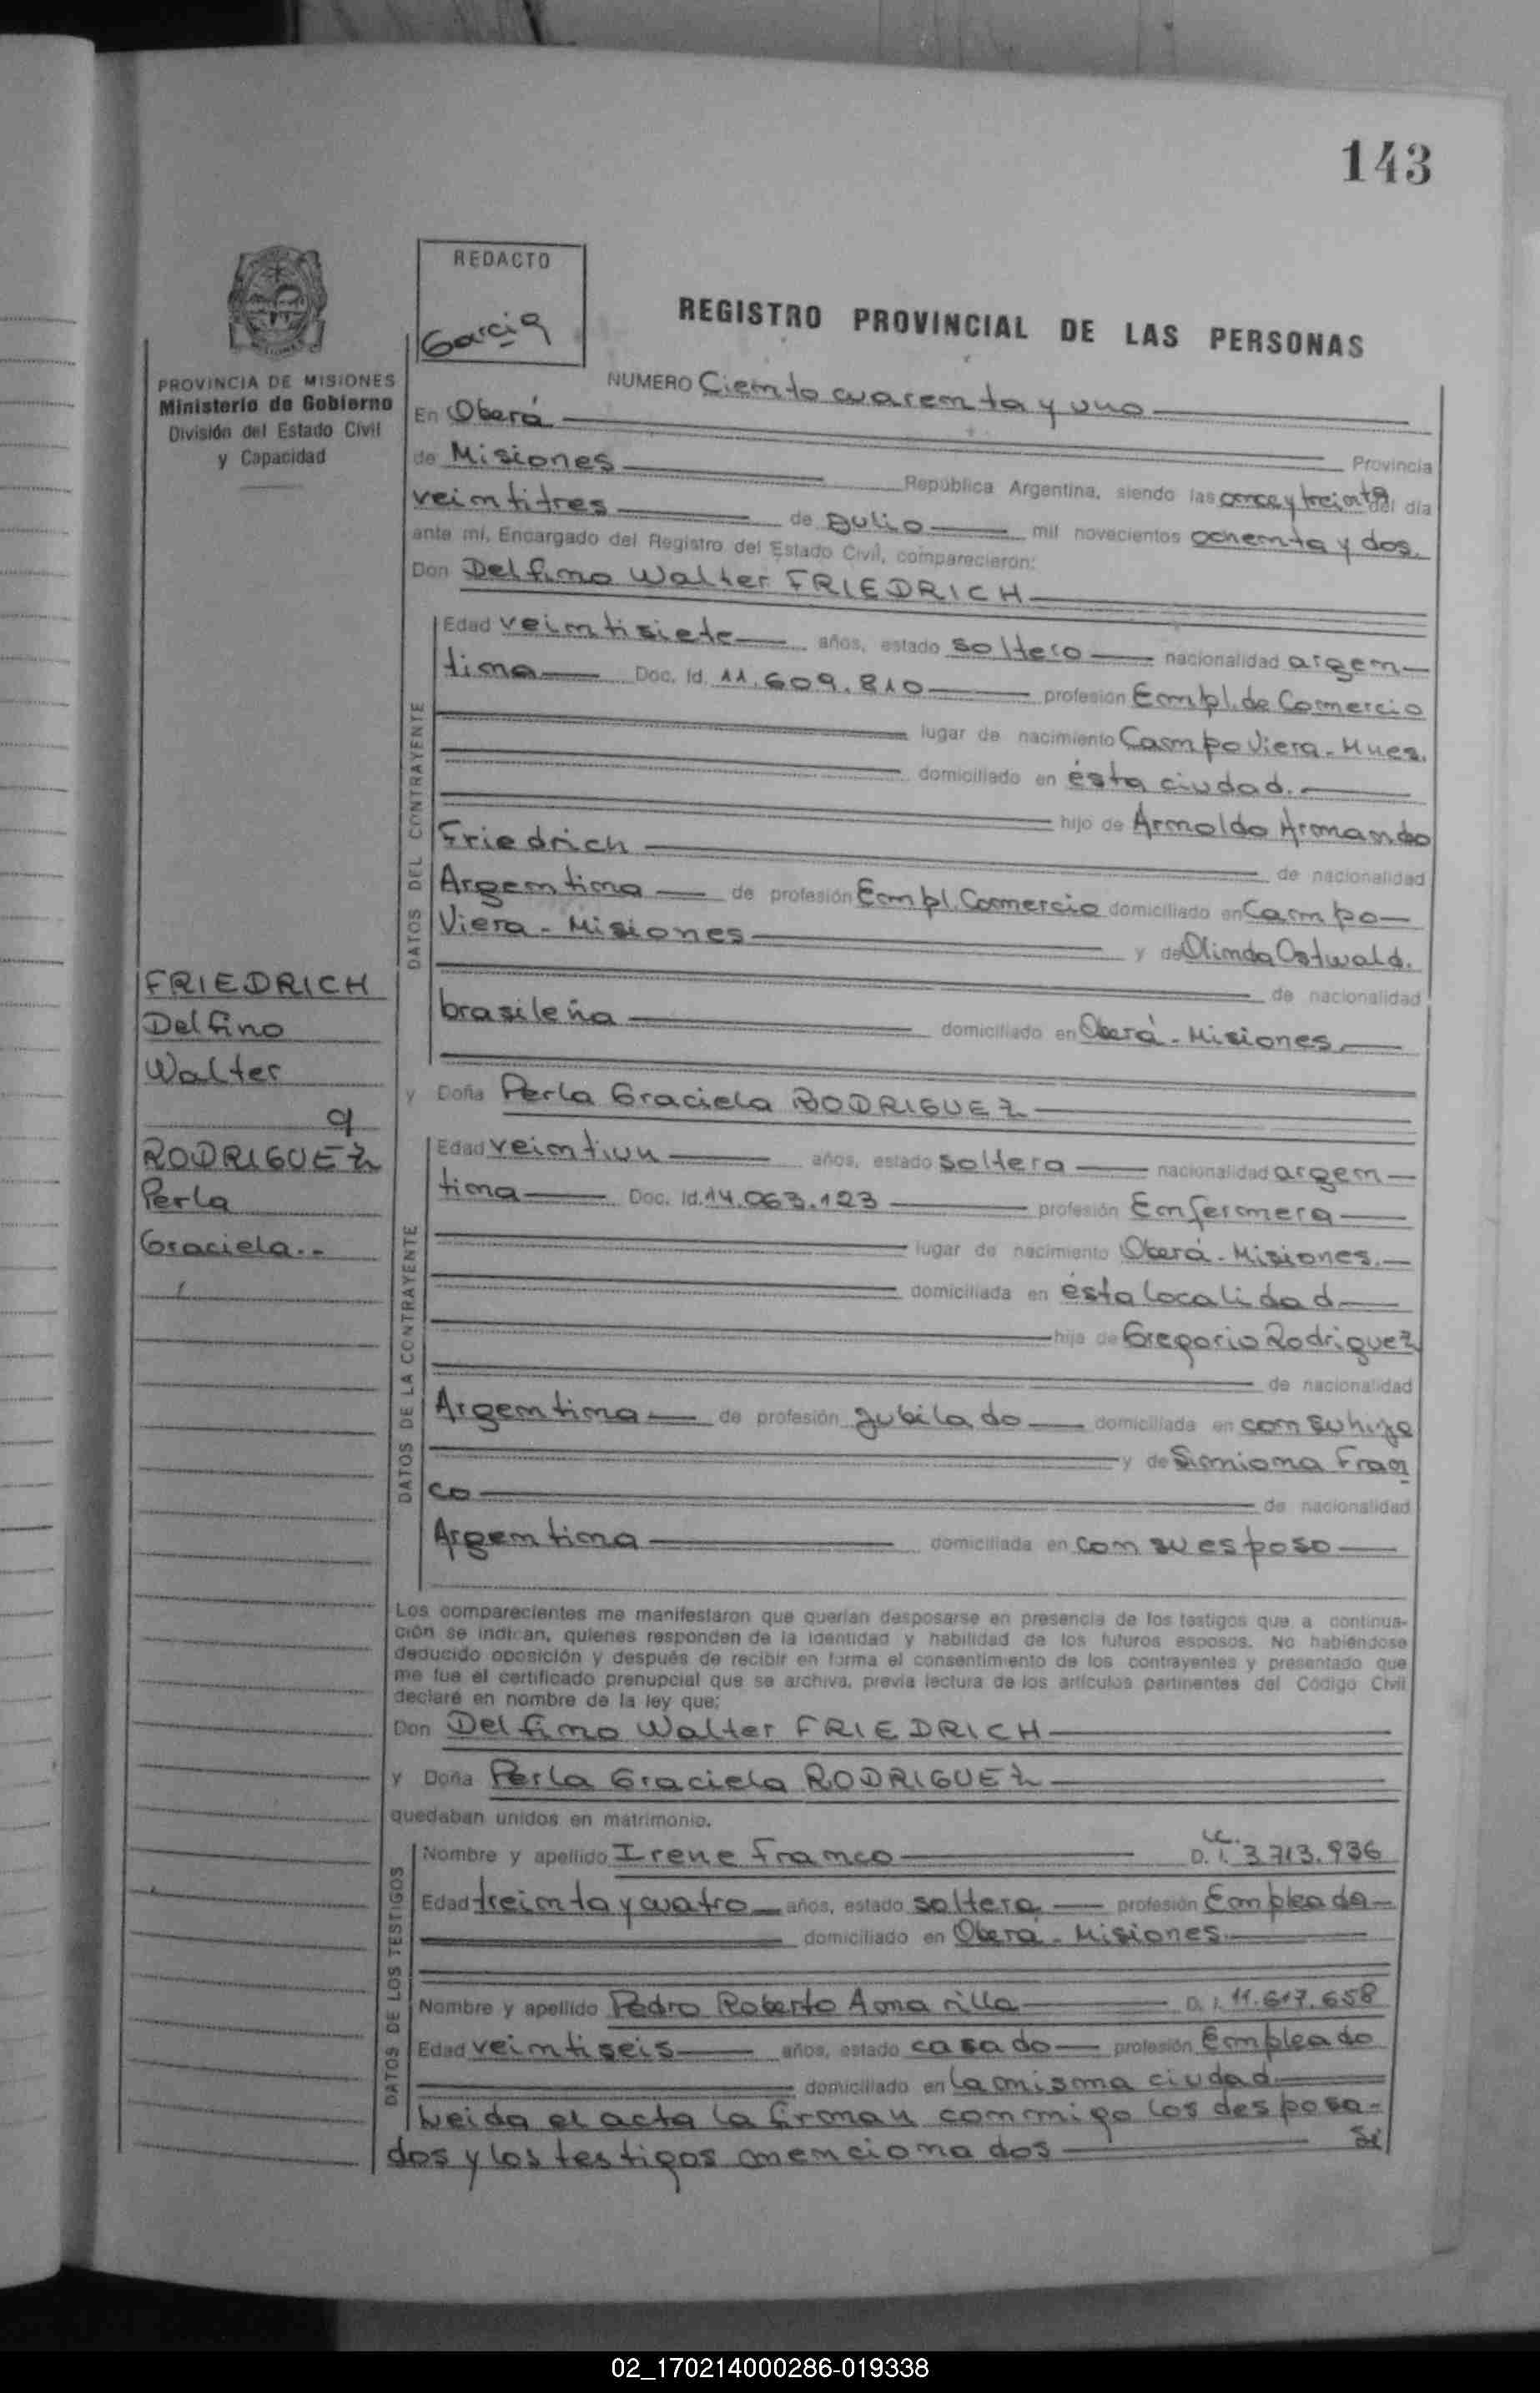 143
REDACTO
Garcia
REGISTRO PROVINCIAL DE LAS PERSONAS
PROVINCIA DE MISIONES
Ministerio de Gobierno
División del Estado Civil
y Capacidad
NUMERO Ciento cuarenta y uno
En Oberá
Provincia
de Misiones República Argentina, siendo las once y treinta del día
veintitres de Julio mil novecientos ochenta y dos.
ante mí, Encargado del Registro del Estado Civil, comparecieron:
Don Delfino Walter FRIEDRICH
DATOS DEL CONTRAYENTE
Edad veintisiete años, estado soltero nacionalidad argen
tina Doc. Id. 11.609.810 profesión Empl. de Comercio
lugar de nacimiento Campo Viera - Mnes.
domiciliado en ésta ciudad.
hijo de Arnoldo Armando
Friedrich de nacionalidad
Argentina de profesión Empl. Comercio domiciliado en Campo
Viera - Misiones y de Olinda Ostwald.
de nacionalidad
brasileña domiciliado en Oberá - Misiones
FRIEDRICH
Delfino
Walter
q
RODRIGUEZ
Perla
Graciela.-
y Doña Perla Graciela RODRIGUEZ
DATOS DE LA CONTRAYENTE
Edad veintiun años, estado soltera nacionalidad argen
tina Doc. Id. 14.063.123 profesión Enfermera
lugar de nacimiento Oberá - Misiones.
domiciliada en ésta localidad
hija de Gregorio Rodriguez
de nacionalidad
Argentina de profesión jubilado domiciliada en con su hija
y de Simiona Fran
co de nacionalidad
Argentina domiciliada en con su esposo
Los comparecientes me manifestaron que querían desposarse en presencia de los testigos que a continua-
ción se indican, quienes responden de la identidad y habilidad de los futuros esposos. No habiéndose
deducido oposición y después de recibir en forma el consentimiento de los contrayentes y presentado que
me fue el certificado prenupcial que se archiva, previa lectura de los artículos pertinentes del Código Civil
declaré en nombre de la ley que;
Don Delfino Walter FRIEDRICH
y Doña Perla Graciela RODRIGUEZ
quedaban unidos en matrimonio.
DATOS DE LOS TESTIGOS
Nombre y apellido Irene Franco L.C. D. I. 3.713.936
Edad treinta y cuatro años, estado soltera profesión Empleada
domiciliado en Oberá - Misiones
Nombre y apellido Pedro Roberto Amarilla D. I. 11.617.658
Edad veintiseis años, estado casado profesión Empleado
domiciliado en la misma ciudad
Leida el acta la firman conmigo los desposa-
dos y los testigos mencionados
02_170214000286-019338